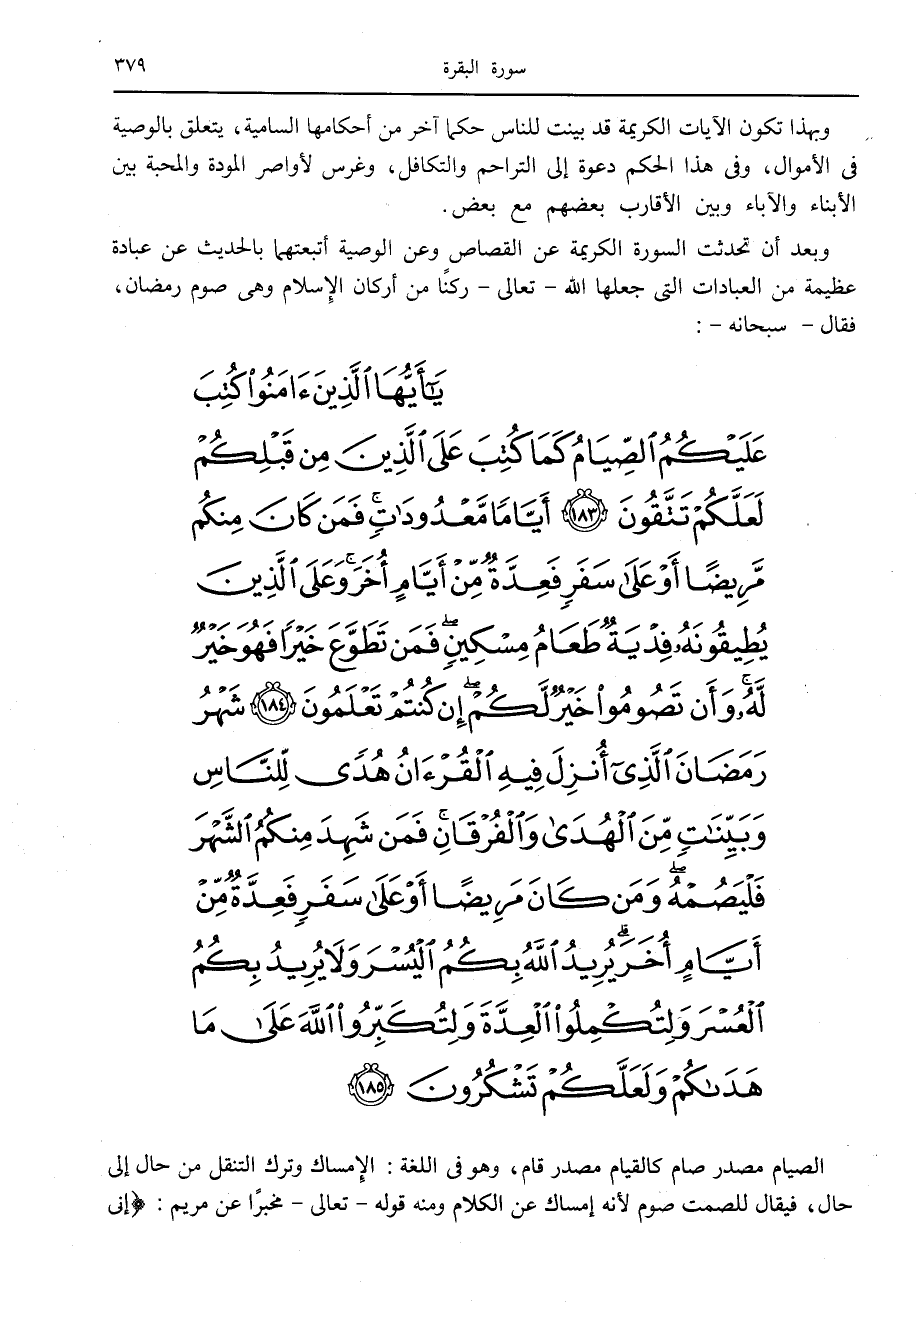 سورة البقرة ٣٧٩
وبهذا تكون الآيات الكريمة قد بينت للناس حكما آخر من أحكامها السامية، يتعلق بالوصية
فى الأموال، وفى هذا الحكم دعوة إلى التراحم والتكافل، وغرس لأواصر المودة والمحبة بين
الأبناء والآباء وبين الأقارب بعضهم مع بعض.
وبعد أن تحدثت السورة الكريمة عن القصاص وعن الوصية أتبعتهما بالحديث عن عبادة
عظيمة من العبادات التى جعلها الله - تعالى - ركنًا من أركان الإسلام وهى صوم رمضان،
فقال - سبحانه - :
يَٰٓأَيُّهَا ٱلَّذِينَ ءَامَنُوا۟ كُتِبَ
عَلَيْكُمُ ٱلصِّيَامُ كَمَا كُتِبَ عَلَى ٱلَّذِينَ مِن قَبْلِكُمْ
لَعَلَّكُمْ تَتَّقُونَ ﴿١٨٣﴾ أَيَّامًا مَّعْدُودَٰتٍ ۚ فَمَن كَانَ مِنكُم
مَّرِيضًا أَوْ عَلَىٰ سَفَرٍ فَعِدَّةٌ مِّنْ أَيَّامٍ أُخَرَ ۚ وَعَلَى ٱلَّذِينَ
يُطِيقُونَهُۥ فِدْيَةٌ طَعَامُ مِسْكِينٍ ۖ فَمَن تَطَوَّعَ خَيْرًا فَهُوَ خَيْرٌ
لَّهُۥ ۚ وَأَن تَصُومُوا۟ خَيْرٌ لَّكُمْ ۖ إِن كُنتُمْ تَعْلَمُونَ ﴿١٨٤﴾ شَهْرُ
رَمَضَانَ ٱلَّذِىٓ أُنزِلَ فِيهِ ٱلْقُرْءَانُ هُدًى لِّلنَّاسِ
وَبَيِّنَٰتٍ مِّنَ ٱلْهُدَىٰ وَٱلْفُرْقَانِ ۚ فَمَن شَهِدَ مِنكُمُ ٱلشَّهْرَ
فَلْيَصُمْهُ ۖ وَمَن كَانَ مَرِيضًا أَوْ عَلَىٰ سَفَرٍ فَعِدَّةٌ مِّنْ
أَيَّامٍ أُخَرَ ۗ يُرِيدُ ٱللَّهُ بِكُمُ ٱلْيُسْرَ وَلَا يُرِيدُ بِكُمُ
ٱلْعُسْرَ وَلِتُكْمِلُوا۟ ٱلْعِدَّةَ وَلِتُكَبِّرُوا۟ ٱللَّهَ عَلَىٰ مَا
هَدَىٰكُمْ وَلَعَلَّكُمْ تَشْكُرُونَ ﴿١٨٥﴾
الصيام مصدر صام كالقيام مصدر قام، وهو فى اللغة : الإمساك وترك التنقل من حال إلى
حال، فيقال للصمت صوم لأنه إمساك عن الكلام ومنه قوله - تعالى - مخبرًا عن مريم : ﴿إنى